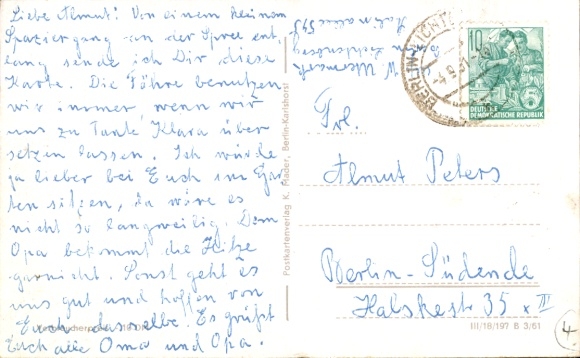 Liebe Almut! Von einem kleinem
Spaziergang an der Spree ent,
lang sende ich Dir diese
Karte. Die Föhre benutzen
wir immer wenn wir
uns zu Tante Klara über
setzen lassen. Ich würde
ja lieber bei Euch im Gar
ten sitzen, da wäre es
nicht so langweilig. Dem
Opa bekommt die Hitze
garnicht. Sonst geht es
uns gut und hoffen von
Euch dasselbe. Es grüßt
Euch alle Oma und Opa.
Postkartenverlag K. Mader, Berlin-Karlshorst
BERLIN-
10
DEUTSCHE
DEMOKRATISCHE REPUBLIK
Frl.
Almut Peters
Berlin-Südende
Halskestr. 35 x III
III/18/197 B 3/61
4